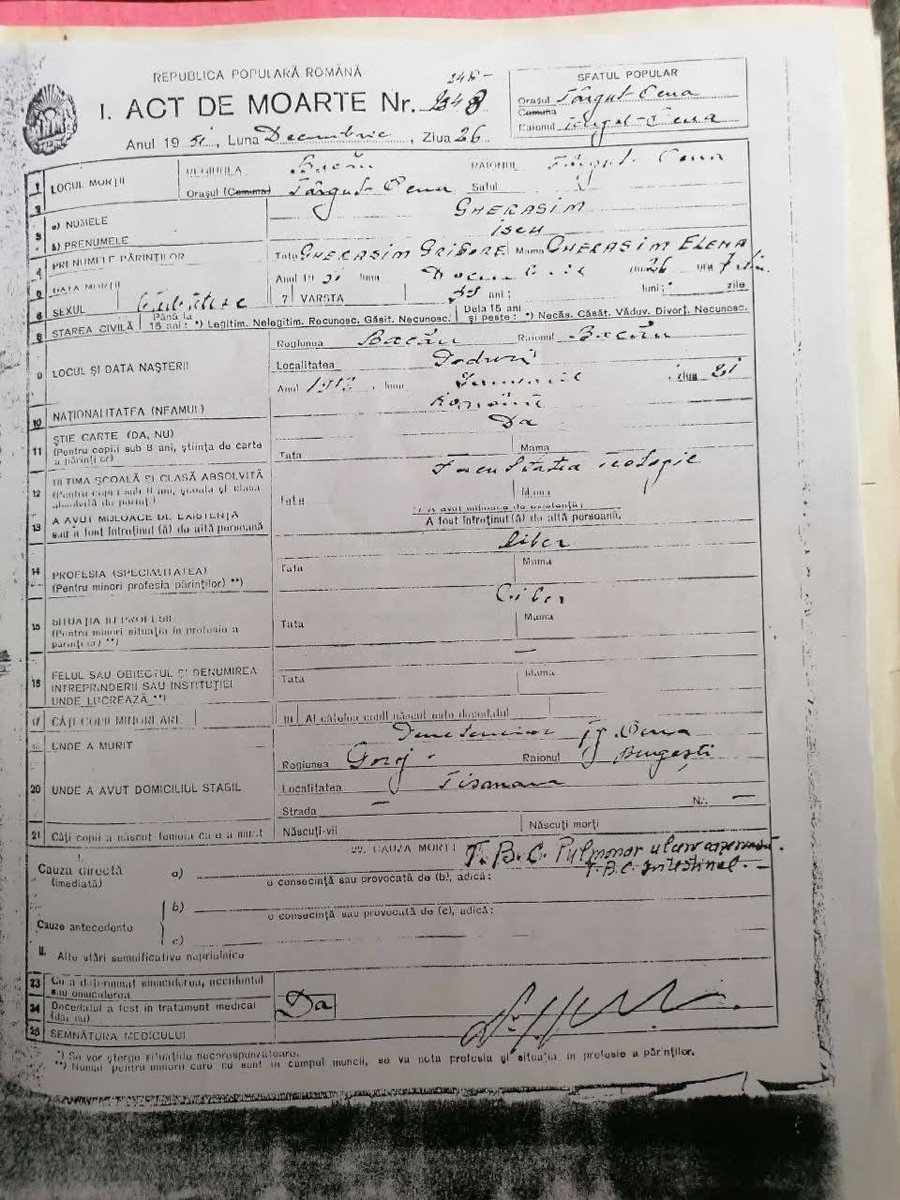 REPUBLICA POPULARĂ ROMÂNĂ
I. ACT DE MOARTE Nr. 248
Anul 1951, Luna Decembrie, Ziua 26
SFATUL POPULAR
Orașul Târgul-Ocna
Comuna
Raionul Târgul-Ocna
1 LOCUL MORȚII
REGIUNEA Bacău RAIONUL Târgul-Ocna
Orașul (Comuna) Târgul-Ocna Satul
a) NUMELE GHERASIM
b) PRENUMELE
PRENUMELE PĂRINȚILOR Tata GHERASIM GRIGORE Mama GHERASIM ELENA
DATA MORȚII Anul 1951 luna Decembrie ziua 26 ora 7
6 SEXUL 7 VARSTA ani; luni; zile
8 STAREA CIVILĂ Până la 15 ani: *) Legitim. Nelegitim. Recunosc. Găsit. Necunosc. Dela 15 ani și peste: *) Necăs. Căsăt. Văduv. Divorț. Necunosc.
9 LOCUL ȘI DATA NAȘTERII
Regiunea Bacău Raionul Bacău
Localitatea
Anul luna ziua 21
10 NAȚIONALITATEA (NEAMUL) Română
11 ȘTIE CARTE (DA, NU) Da
(Pentru copiii sub 8 ani, știința de carte a părinților) Tata Mama
12 ULTIMA ȘCOALĂ ȘI CLASĂ ABSOLVITĂ Facultatea teologie
(Pentru copii sub 8 ani, școala și clasa absolvită de părinți) Tata Mama
13 A AVUT MIJLOACE DE EXISTENȚĂ
sau a fost întreținut (ă) de altă persoană A fost întreținut (ă) de altă persoană.
14 PROFESIA (SPECIALITATEA) liber
(Pentru minori profesia părinților) **) Tata Mama
15 SITUAȚIA ÎN PROFESIE liber
(Pentru minori situația în profesie a părinților) **) Tata Mama
16 FELUL SAU OBIECTUL ȘI DENUMIREA —
INTREPRINDERII SAU INSTITUȚIEI
UNDE LUCREAZĂ **) Tata Mama
17 CÂȚI COPII MINORI ARE 18 Al câtelea copil născut este decedatul
UNDE A MURIT Penitenciar Tg. Ocna
20 UNDE A AVUT DOMICILIUL STABIL
Regiunea Gorj Raionul
Localitatea Tismana
Strada — Nr. —
21 Câți copii a născut femeia ce a murit Născuți-vii Născuți morți
22. CAUZA MORȚII T.B.C. Pulmonar
T.B.C. Intestinal.
Cauza directă (imediată) a)
o consecință sau provocată de (b), adică:
Cauze antecedente b)
o consecință sau provocată de (c), adică:
c)
II. Alte stări semnificative neprielnice
23 Ce a determinat sinuciderea, accidentul sau omuciderea
24 Decedatul a fost in tratament medical (da, nu) Da
25 SEMNĂTURA MEDICULUI
*) Se vor șterge situațiile necorespunzătoare.
**) Numai pentru minorii care nu sunt în câmpul muncii, se va nota profesia și situația in profesie a părinților.